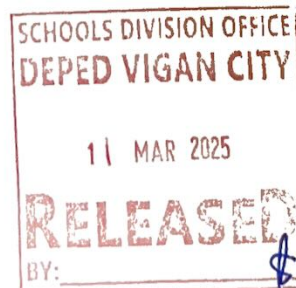 SCHOOLS DIVISION OFFICE
DEPED VIGAN CITY
11 MAR 2025
RELEASED
BY: